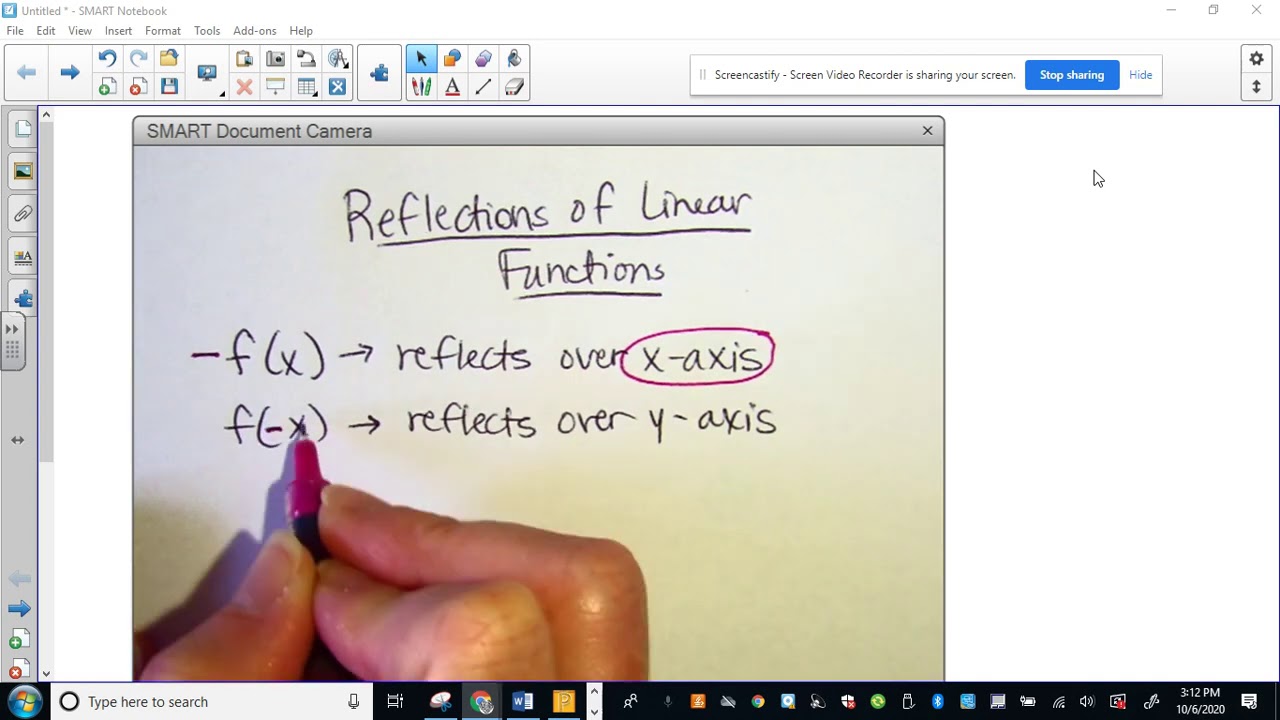 Untitled * - SMART Notebook
File Edit View Insert Format Tools Add-ons Help
Screencastify - Screen Video Recorder is sharing your screen. Stop sharing Hide
SMART Document Camera
Reflections of Linear
Functions
-f(x) → reflects over x-axis
f(-x) → reflects over y-axis
Type here to search
3:12 PM
10/6/2020